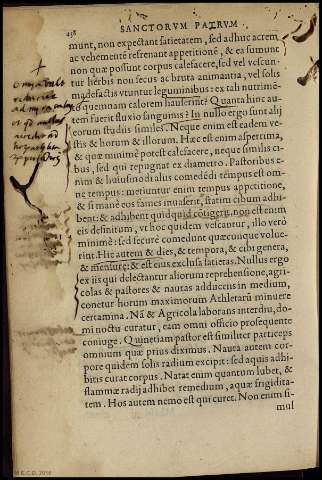 438 SANCTORVM PATRVM
munt, non expectant satietatem, sed adhuc acrem
ac vehementẽ refrenant appetitionẽ, & ea sumunt
non quæ possunt corpus calefacere, sed vel vescun-
tur herbis non secus ac bruta animantia, vel solis
madefactis vtuntur leguminibus: ex tali nutrimẽ-
to quemnam calorem hauserint? Quanta hinc au-
tem fuerit fluxio sanguinis? In nullo ergo sunt alij
eorum studiis similes. Neque enim est eadem ve-
stis & horum & illorum. Hæc est enim aspertima,
& quæ minimẽ potest calefacere, neque similis ci-
bus, sed qui repugnat ex diametro. Pastoribus e-
nim & huiusmodi talus comedẽdi tẽmpus est omne
tempus: metiuntur enim tempus appetitione,
& si mane eos fames inuaserit, statim cibum adhi-
bent: & adhibent quidquid cõtigerit. non est enim
eis definitum, vt hoc quidem vescantur, illo verò
minimè: sed securè comedunt quæcunque volue-
rint. Hîc autem & dies, & tempora, & cibi genera,
& mensuræ: & est eius exclusa satietas. Nullus ergo
ex iis qui delectantur aliorum reprehensione, agri-
colas & pastores & nautas adducens in medium,
conetur horum maximorum Athletarũ minuere
certamina. Nã & Agricola laborans interdiu, do-
mi noctu curatur, eam omni officio prosequente
coniuge. Quinetiam pastor est similiter particeps
omnium quæ prius diximus. Nauta autem cor-
pore quidem solis radium excipit: sed aquis adhi-
bitis curat corpus. Natat enim quantum lubet, &
flammæ radij adhibet remedium, aquæ frigidita-
tem. Hos autem nemo est qui curet. Non enim si-
mul
M.E.C.D. 2016